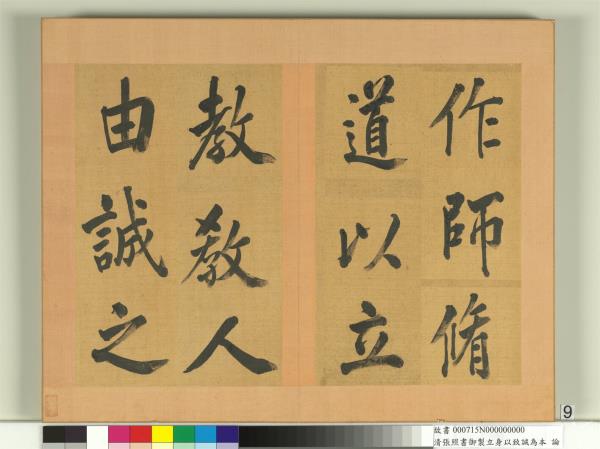 作師脩
道以立
教教人
由誠之
9
故書 000715N000000000
清張照書御製立身以致誠為本 論